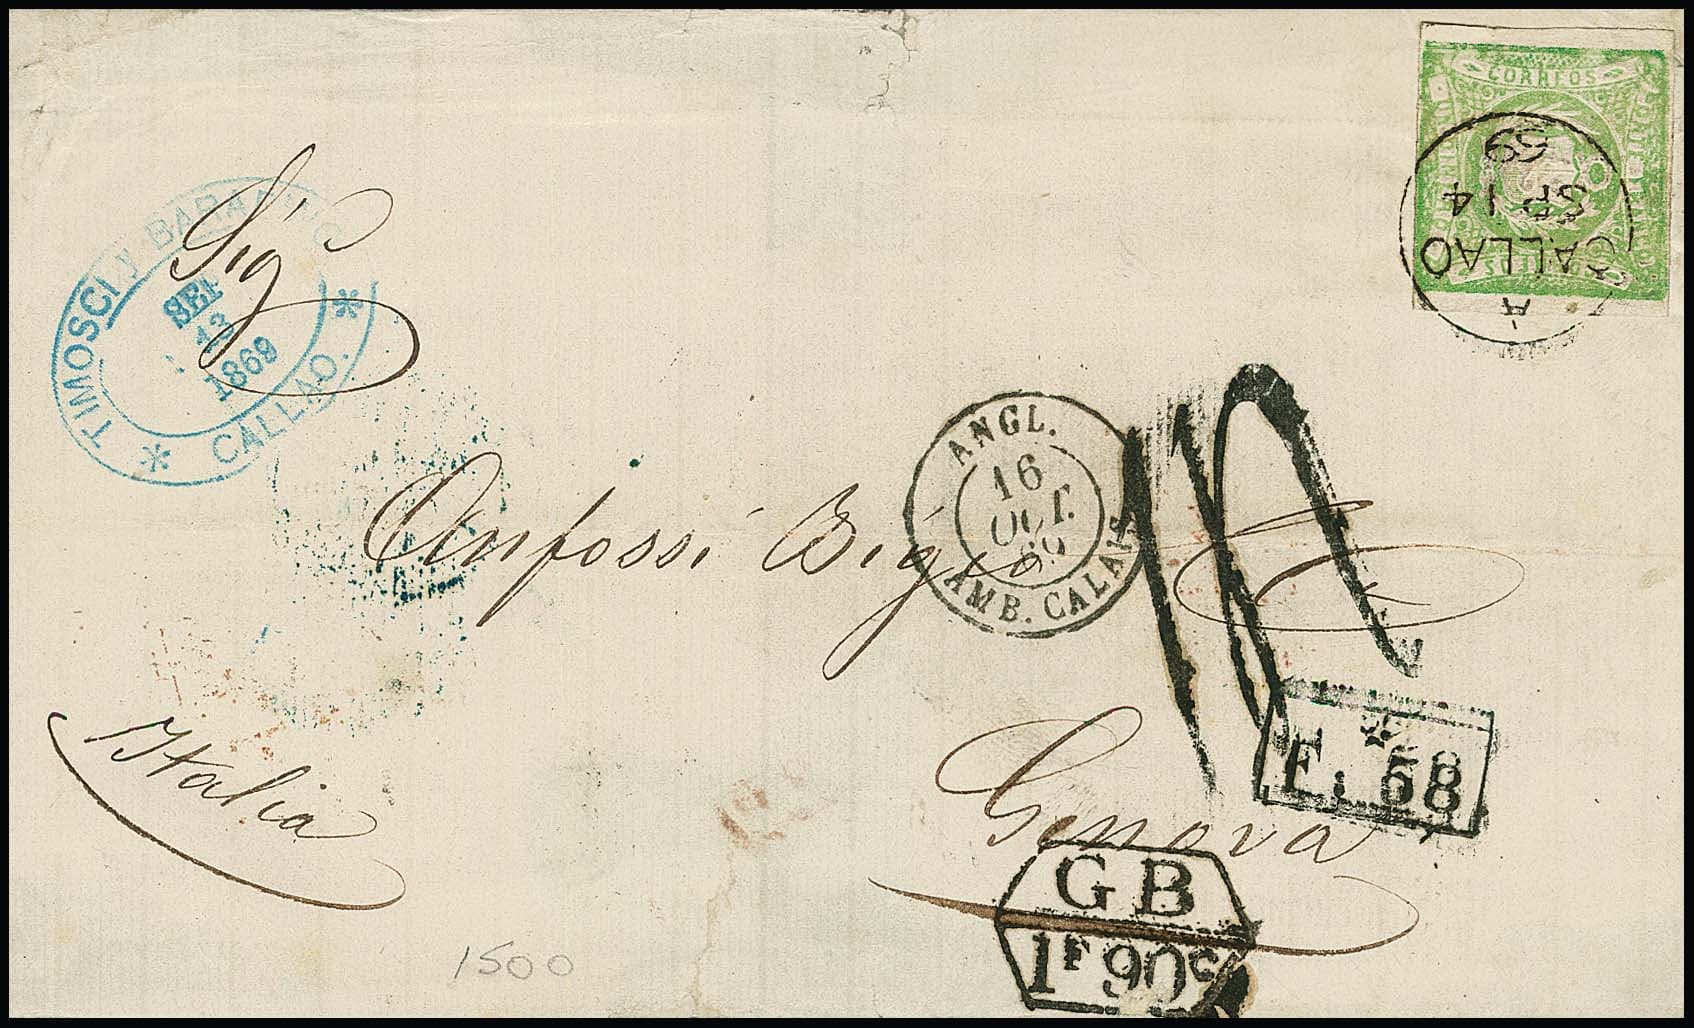 CORREOS
A
CALLAO
SP 14
69
TIMOSCI y
SET
13
1869
CALLAO.
Sig
ANGL.
16
OCT.
69
AMB. CALAIS
Anfossi Bigio
Italia
Genova
F. 58
GB
1F 90c
1500